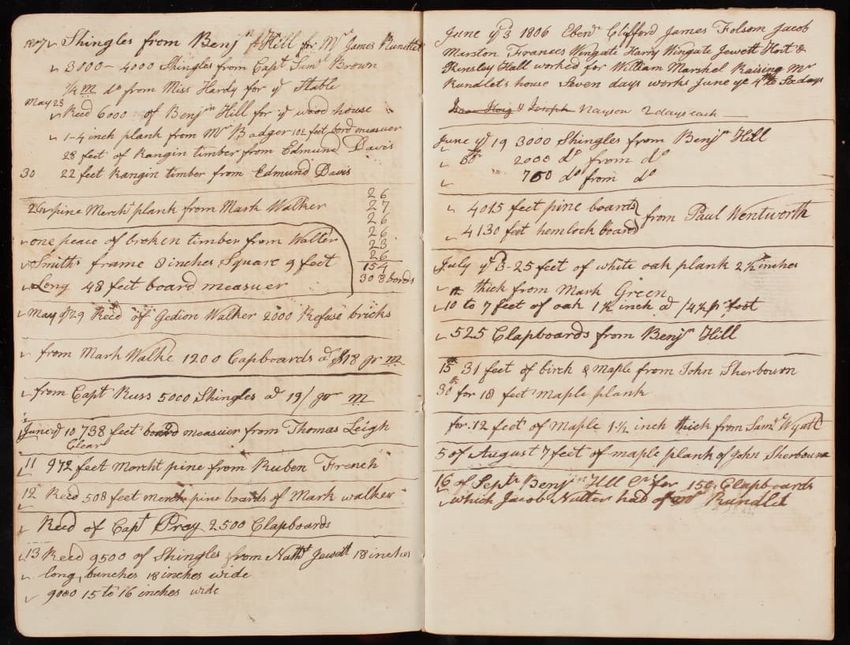 1807 Shingles from Benjn Hill for Mr James Rundlet
3000 - 4000 Shingles from Capt Saml Brown
¼ M do from Miss Hardy for ye Stable
May 23
Recd 6000 of Benjn Hill for ye wood house
1-4 inch plank from Mr Badger 102 feet bord measuer
28 feet of Rangin timber from Edmund Davis
30 22 feet Rangin timber from Edmund Davis
pine Mercht plank from Mark Walker
26
27
26
26
23
26
154
308 bords
one peace of broken timber from Walter
Smiths frame 8 inches Square 9 feet
Long 48 feit board measuer
May ye 29 Recd of Gedion Walker 2000 Refuse bricks
from Mark Walke 1200 Capboards a $18 pr M
from Capt Russ 5000 Shingles at 19/ pr M
June ye 10 738 feet board measuer from Thomas Leigh
Clear
11 972 feet Mercht pine from Ruben French
12 Recd 508 feet merch pine boards of Mark walker
Recd of Capt Prey 2500 Clapboards
13 Recd 9500 of Shingles from Nathl Jewett 18 inches
long, bunches 18 inches wide
9000 15 to 16 inches wide
June ye 3 1806 Ebenr Clifford James Folsom Jacob
Marston Frances Wingate Harry Wingate Jewett Hort &
Kinsley Hall worked for William Marshel Raising Mr
Rundlets house Seven days works June ye 4th Six days
& Joseph Nayson 2 days each
June ye 19 3000 Shingles from Benjn Hill
2000 do from do
700 do from do
4015 feet pine boards
4130 feet hemlock board
from Paul Wentworth
July ye 3 - 25 feet of white oak plank 2½ inches
thick from Mark Green
10 to 7 feet of oak 1½ inch a /4½ pr foot
525 Clapboards from Benjn Hill
15th 31 feet of birch & maple from John Sherbourn
30th for 18 feet maple plank
for 12 feet of maple 1½ inch thick from Saml Wyatt
5 of August 7 feet of maple plank of John Sherbourn
16 of Septr Benjn Hill Cr for 150 Clapboards
which Jacob Nutter had of Mr Rundlet